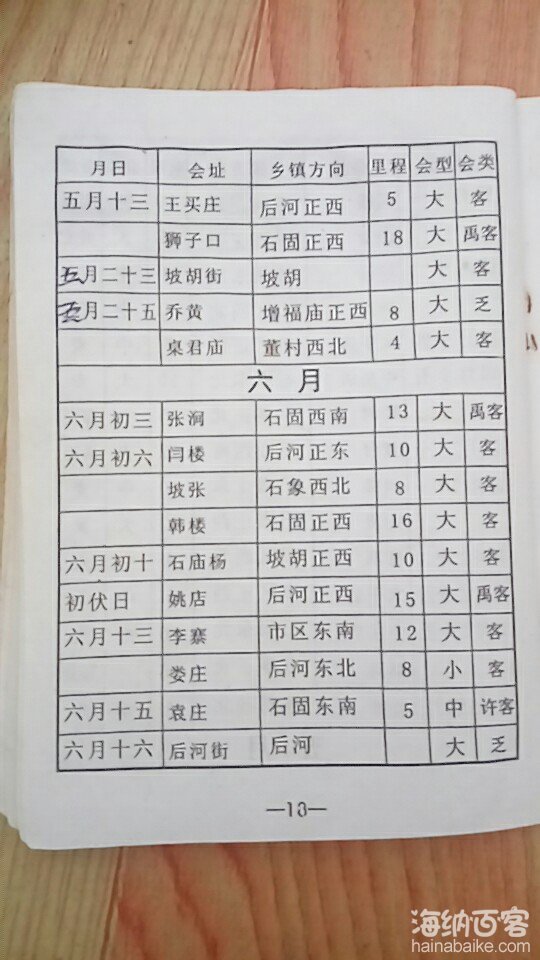 月日 会址 乡镇方向 里程 会型 会类
五月十三 王买庄 后河正西 5 大 客
狮子口 石固正西 18 大 禹客
五月二十三 坡胡街 坡胡 大 客
五月二十五 乔黄 增福庙正西 8 大 乏
枲君庙 董村西北 4 大 客
六月
六月初三 张涧 石固西南 13 大 禹客
六月初六 闫楼 后河正东 10 大 客
坡张 石象西北 8 大 客
韩楼 石固正西 16 大 客
六月初十 石庙杨 坡胡正西 10 大 客
初伏日 姚店 后河正西 15 大 禹客
六月十三 李寨 市区东南 12 大 客
娄庄 后河东北 8 小 客
六月十五 袁庄 石固东南 5 中 许客
六月十六 后河街 后河 大 乏
—13—
海纳百客
hainabaike.com